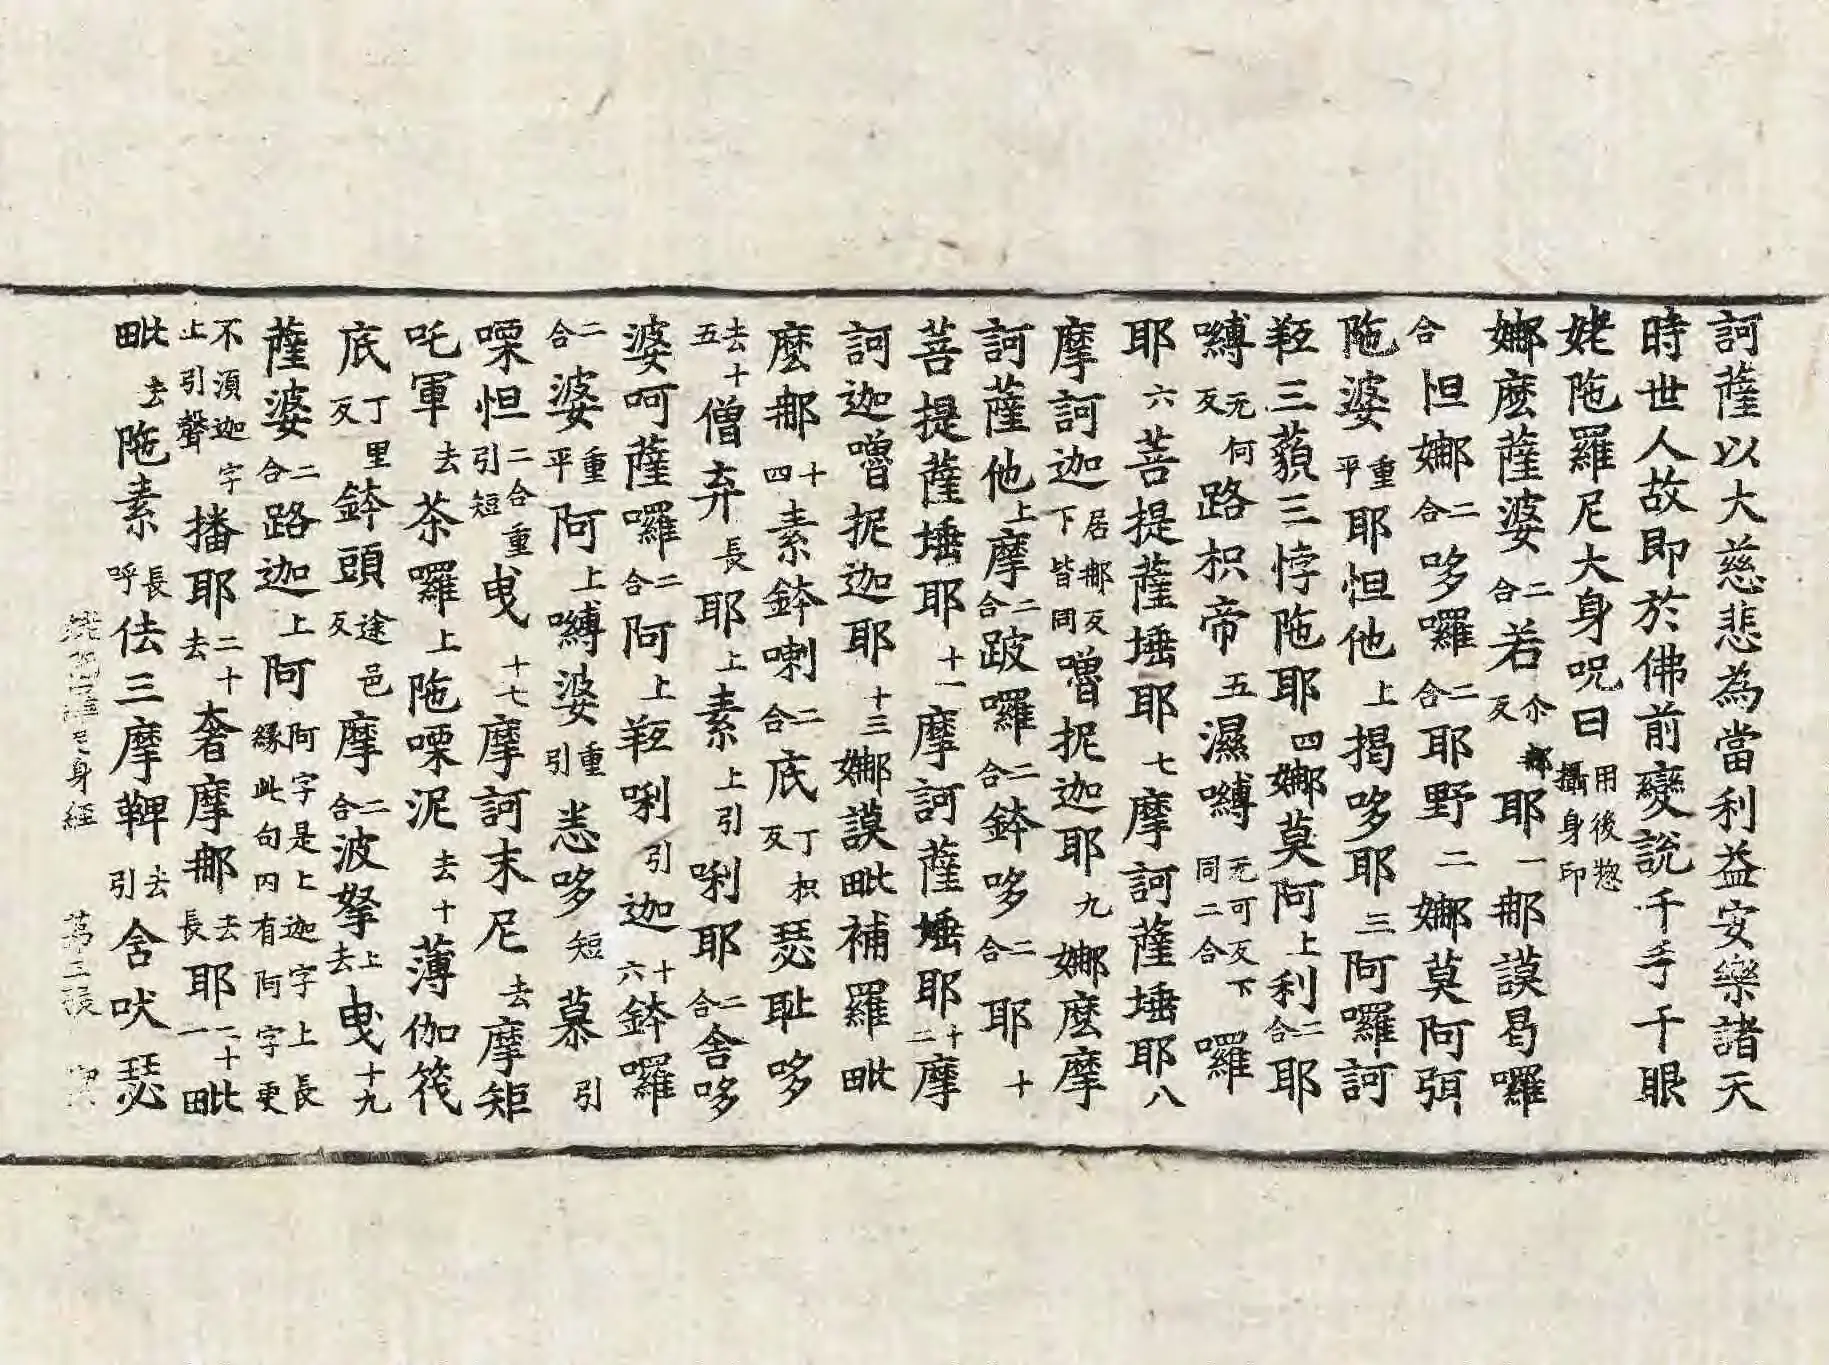 訶薩以大慈悲為當利益安樂諸天
時世人故即於佛前變說千手千眼
姥陁羅尼大身呪曰用後惣攝身印
娜麼薩婆二合若尒那反耶一那謨曷囉
合怛娜二合哆囉二合耶野二娜莫阿弭
陁婆重平耶怛他上揭哆耶三阿囉訶
羝三藐三悖陁耶四娜莫阿上利二合耶
嚩无何反路枳帝五濕嚩无可反下同二合囉
耶六菩提薩埵耶七摩訶薩埵耶八
摩訶迦居那反下皆同嚕抳迦耶九娜麼摩
訶薩他上摩二合跛囉二合鉢哆二合耶十
菩提薩埵耶十一摩訶薩埵耶十二摩
訶迦嚕抳迦耶十三娜謨毗補羅毗
麼那十四素鉢喇二合底丁枳反瑟耻哆
去十五僧弃長耶上素上引唎耶二合舍哆
婆呵薩囉二合阿上羝唎引迦十六鉢囉
二合婆重平阿上嚩婆重引悉哆短慕引
㗚怛二合重引短曳十七摩訶末尼去摩矩
吒軍去荼囉上陁㗚泥去十薄伽筏
底丁里反鉢頭途邑反摩二合波拏上去曳十九
薩婆二合路迦上阿阿字是上迦字上長緣此句內有阿字更
不須迦字上引聲播耶二十去奢摩那去長耶二十一毗
毗去陁素長呼佉三摩鞞去引舍吠瑟
身經 第三張